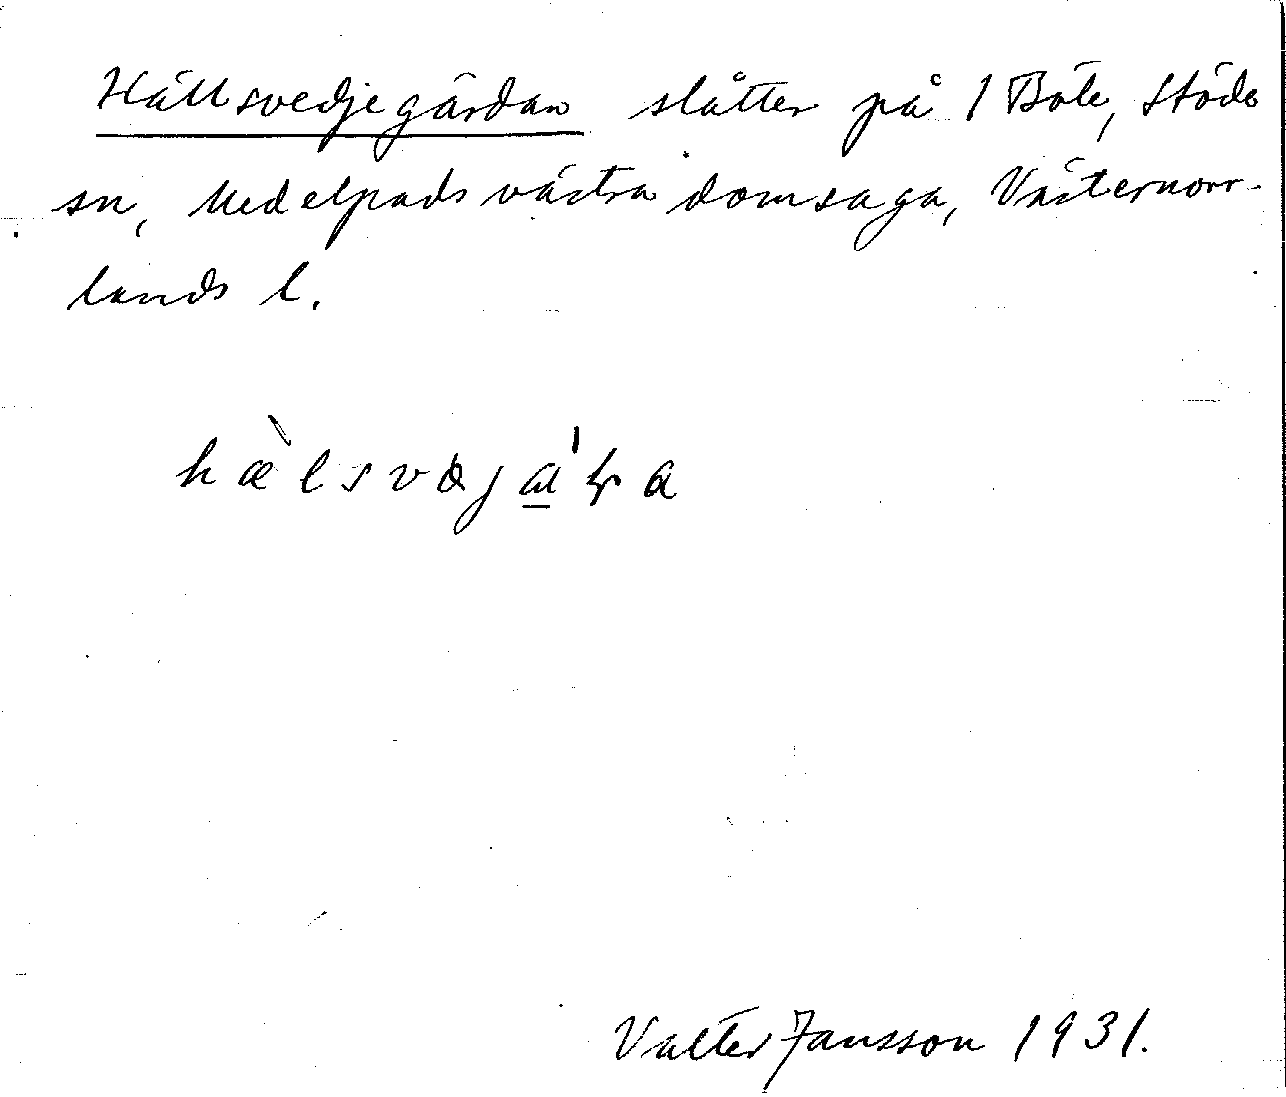 Hällsvedjegärdan slåtter på 1 Böle, Stöde
sn, Medelpads västra domsaga, Västernorr-
lands l.
Valter Jansson 1931.